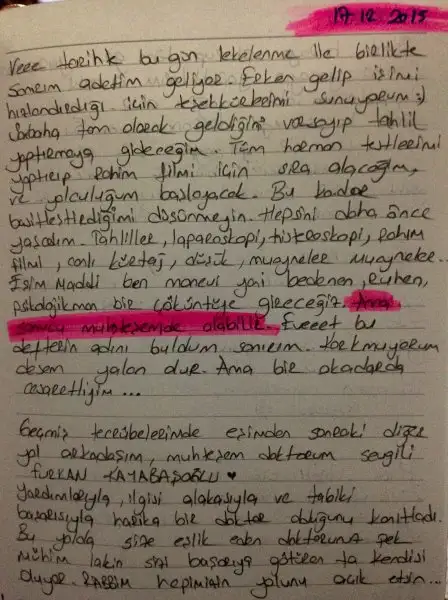 17.12.2015
Veee tarihk bu gün, lekelenme ile birlikte
sanırım adetim geliyor. Erken gelip işimi
hızlandırdığı için teşekkürlerimi sunuyorum :)
Sabaha tam olarak geldiğini varsayıp tahlil
yaptırmaya gideceğim. Tüm hormon testlerimi
yaptırıp Rahim filmi için sıra alacağım,
ve yolculuğum başlayacak. Bu kadar
basitleştirdiğimi düşünmeyin. Hepsini daha önce
yaşadım. Tahliller, laparoskopi, histeroskopi, Rahim
filmi, canlı kürtaj, düşük, muayneler muayneler..
Eşim Maddi ben manevi yani bedenen, ruhen,
Psikolojikmen bir çöküntüye gireceğiz. Ama
sonucu muhteşemde olabilir. Eveeet bu
defterin adını buldum sanırım. Korkmuyorum
desem yalan olur. Ama bir okadarda
cesaretliyim ...
Geçmiş tecrübelerimde eşimden sonraki diğer
yol arkadaşım, muhteşem doktorum sevgili
FURKAN KAYABAŞOĞLU ♥
Yardımlarıyla, ilgisi alakasıyla ve tabiki
başarısıyla harika bir doktor olduğunu kanıtladı.
Bu yolda size eşlik eden doktorunuz pek
mühim lakin sizi başarıya götüren ta kendisi
oluyor. RABBİM hepimizin yolunu açık etsin...